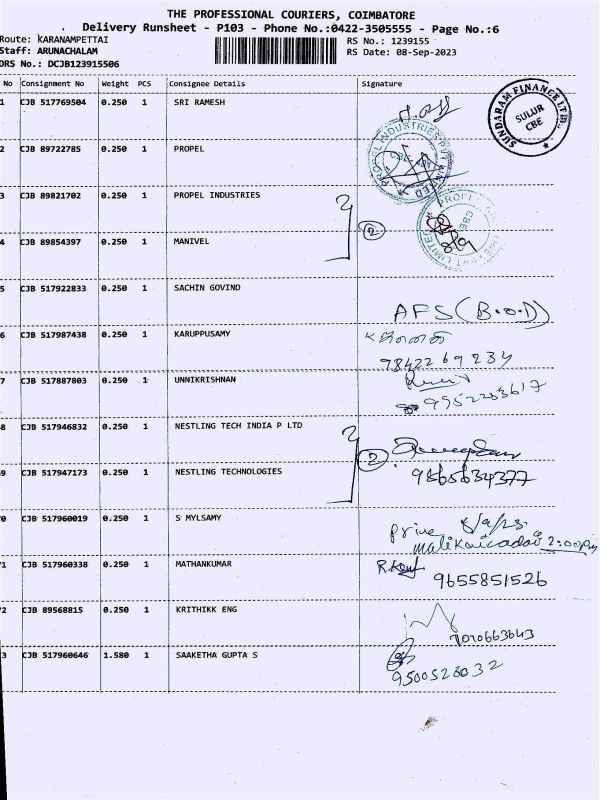 THE PROFESSIONAL COURIERS, COIMBATORE
Delivery Runsheet - P103 - Phone No.:0422-3505555 - Page No.:6
Route: KARANAMPETTAI
RS No.: 1239155
Staff: ARUNACHALAM
RS Date: 08-Sep-2023
DRS No.: DCJB123915506
No Consignment No Weight PCS Consignee Details Signature
1 CJB 517769504 0.250 1 SRI RAMESH
SUNDARAM FINANCE LTD.,
SULUR
CBE
2 CJB 89722785 0.250 1 PROPEL
PROPEL INDUSTRIES PVT LIMITED
3 CJB 89821702 0.250 1 PROPEL INDUSTRIES
PROPEL
CBE
LIMITED
2
4 CJB 89854397 0.250 1 MANIVEL
5 CJB 517922833 0.250 1 SACHIN GOVIND
AFS (B.O.I)
6 CJB 517987438 0.250 1 KARUPPUSAMY
9842269234
7 CJB 517887803 0.250 1 UNNIKRISHNAN
9952283617
8 CJB 517946832 0.250 1 NESTLING TECH INDIA P LTD
2
9 CJB 517947173 0.250 1 NESTLING TECHNOLOGIES
9865634377
0 CJB 517960019 0.250 1 S MYLSAMY
2:00pm
1 CJB 517960338 0.250 1 MATHANKUMAR
9655851526
2 CJB 89568815 0.250 1 KRITHIKK ENG
3 CJB 517960646 1.580 1 SAAKETHA GUPTA S
9500528032